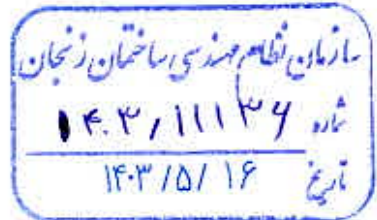 سازمان نظام مهندسی ساختمان زنجان
شماره ۱۴۰۳/۱۱۱۳۶
تاریخ ۱۴۰۳/۵/۱۶